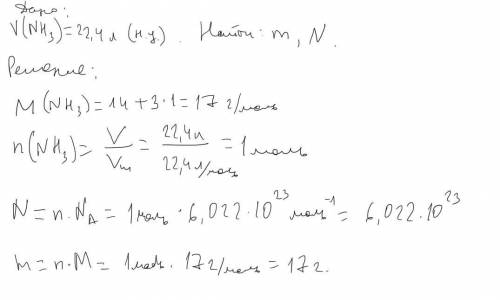 Дано:
V(NH₃)=22,4 л (н.у.). Найти: m, N.
Решение:
M(NH₃)=14+3·1=17 г/моль
n(NH₃)= V/Vm = 22,4л/22,4л/моль = 1 моль
N=n·N_A=1моль·6,022·10²³ моль⁻¹= 6,022·10²³
m=n·M=1моль·17 г/моль=17 г.